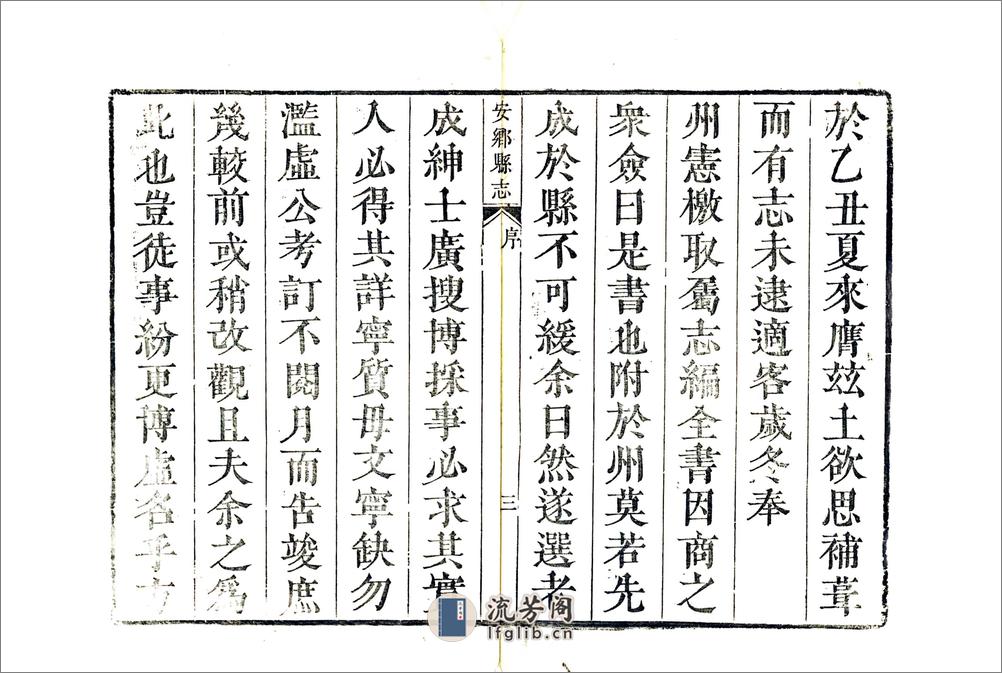 於乙丑夏來膺茲土欲思補葺
而有志未逮適客歲冬奉
州憲檄取屬志編全書因商之
衆僉曰是書也附於州莫若先
成於縣不可緩余曰然遂選老
安鄉縣志
序
三
成紳士廣搜博採事必求其實
人必得其詳寧質毋文寧缺勿
濫虛公考訂不閱月而告竣庶
幾較前或稍改觀且夫余之爲
此也豈徒事紛更博虛名乎方
流芳阁
lfglib.cn